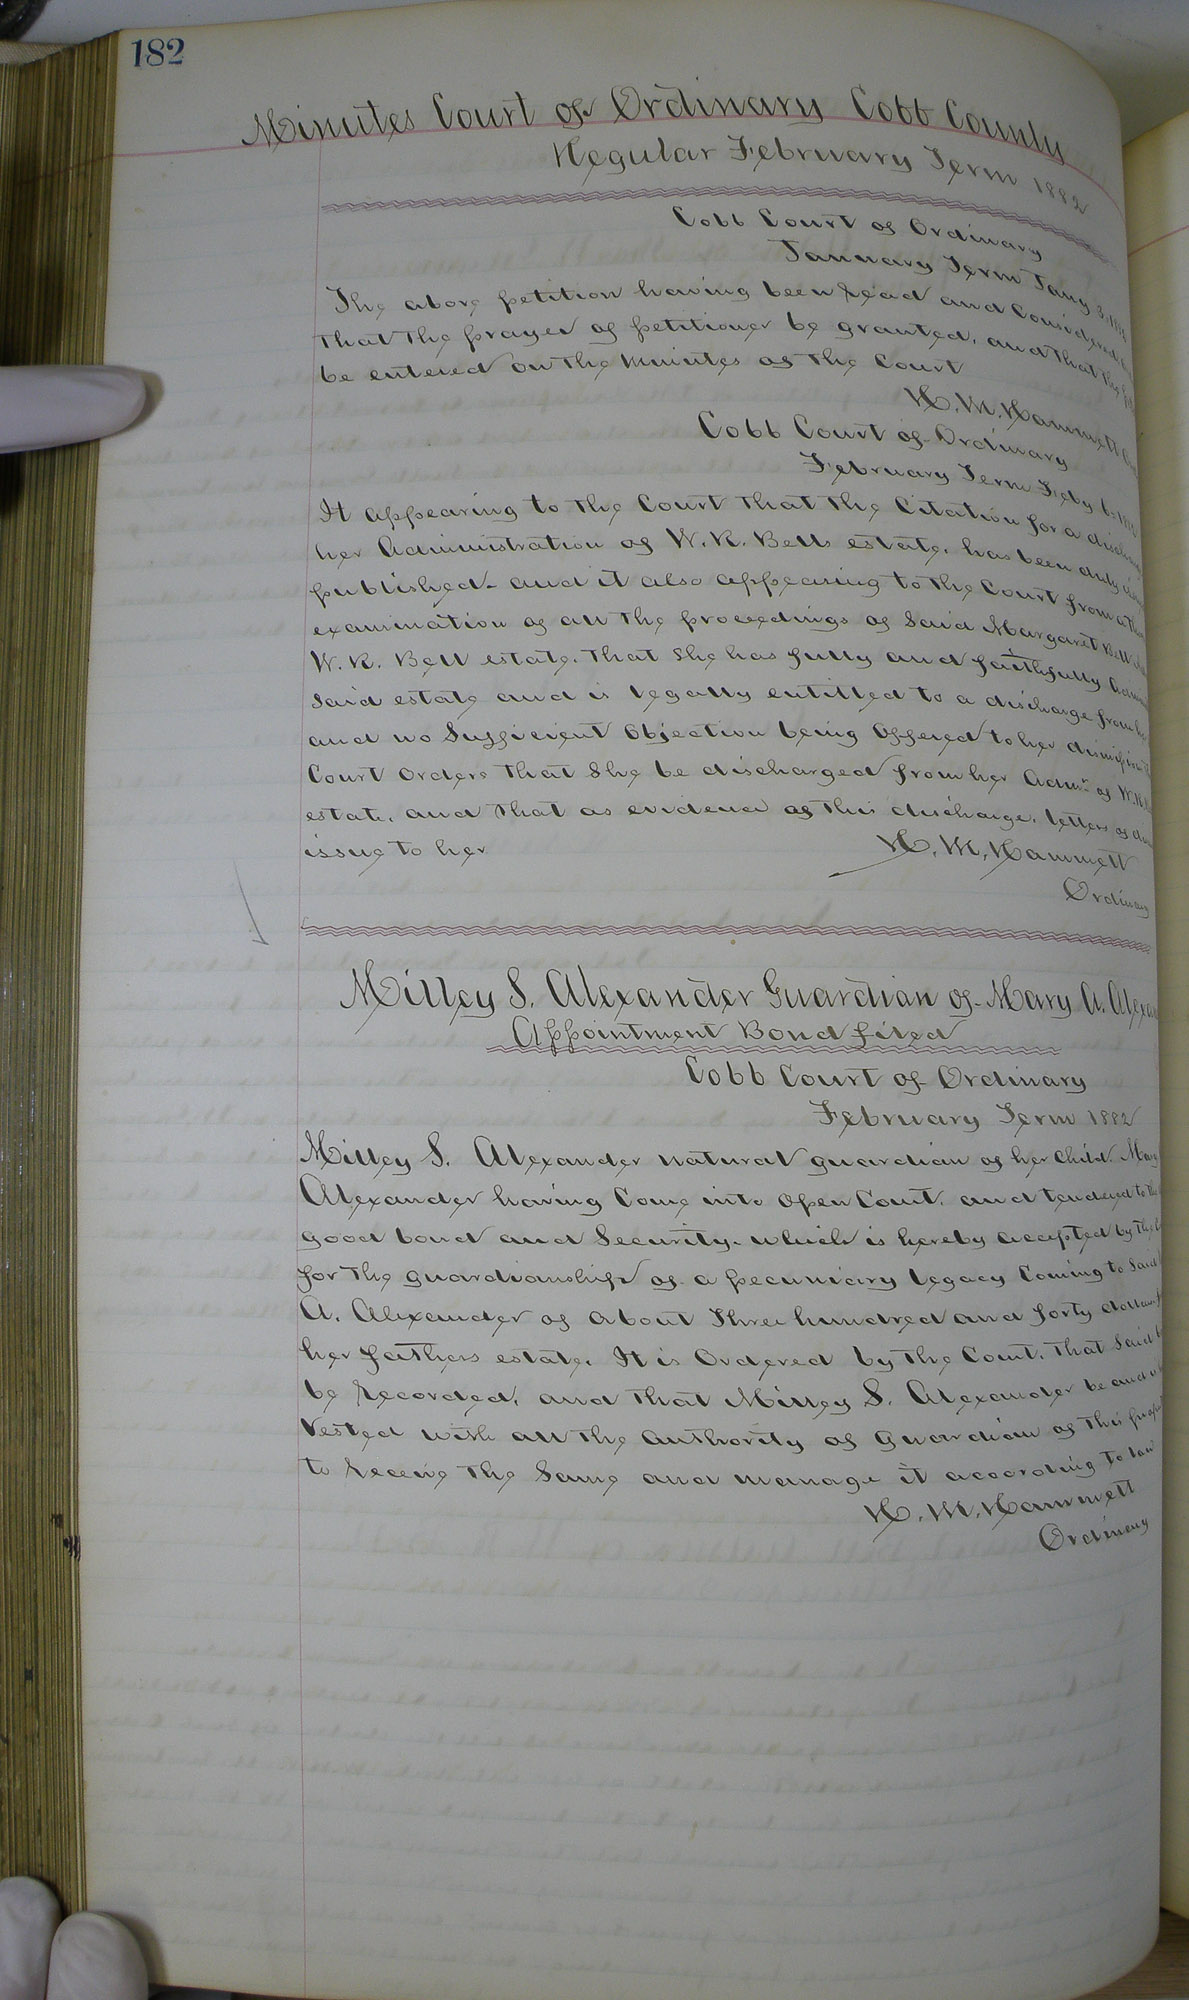 182
Minutes Court of Ordinary Cobb County
Regular February Term 1882
Cobb Court of Ordinary
January Term Jany 3, 1882
The above petition having been read and Considered
that the prayer of petitioner be granted, and that the
be entered on the minutes of the Court
H. M. Hammett
Cobb Court of Ordinary
February Term Feby 6, 1882
It appearing to the Court that the Citation for a
her Administration of W. R. Bells estate, has been duly
published- and it also appearing to the Court from a
examination of all the proceedings of Said Margaret Bell
W. R. Bell estate, that She has fully and faithfully
Said estate and is legally entitled to a discharge from
and no Sufficient Objection being Offered to her
Court Orders that She be discharged from her Admr. of W. R.
estate, and that as evidence of this discharge, letters of
issue to her
H. M. Hammett
Ordinary
Milley S. Alexander Guardian of Mary A.
Appointment Bond filed
Cobb Court of Ordinary
February Term 1882
Milley S. Alexander natural guardian of her Child
Alexander having Come into Open Court, and tendered to the
good bond and Security- which is hereby accepted by the
for the guardianship of a pecuniary legacy Coming to Said
A. Alexander of about Three hundred and forty dollars
her fathers estate. It is Ordered by the Court, that Said
be recorded, and that Milley S. Alexander be and
Vested with all the Authority of Guardian of this
to receive the Same and manage it according to law
H. M. Hammett
Ordinary